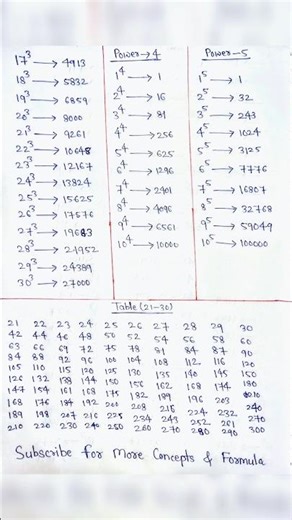 17³ → 4913
18³ → 5832
19³ → 6859
20³ → 8000
21³ → 9261
22³ → 10648
23³ → 12167
24³ → 13824
25³ → 15625
26³ → 17576
27³ → 19683
28³ → 21952
29³ → 24389
30³ → 27000
Power → 4
1⁴ → 1
2⁴ → 16
3⁴ → 81
4⁴ → 256
5⁴ → 625
6⁴ → 1296
7⁴ → 2401
8⁴ → 4096
9⁴ → 6561
10⁴ → 10000
Power → 5
1⁵ → 1
2⁵ → 32
3⁵ → 243
4⁵ → 1024
5⁵ → 3125
6⁵ → 7776
7⁵ → 16807
8⁵ → 32768
9⁵ → 59049
10⁵ → 100000
Table (21-30)
21 22 23 24 25 26 27 28 29 30
42 44 46 48 50 52 54 56 58 60
63 66 69 72 75 78 81 84 87 90
84 88 92 96 100 104 108 112 116 120
105 110 115 120 125 130 135 140 145 150
126 132 138 144 150 156 162 168 174 180
147 154 161 168 175 182 189 196 203 210
168 176 184 192 200 208 216 224 232 240
189 198 207 216 225 234 243 252 261 270
210 220 230 240 250 260 270 280 290 300
Subscribe for More Concepts & Formula